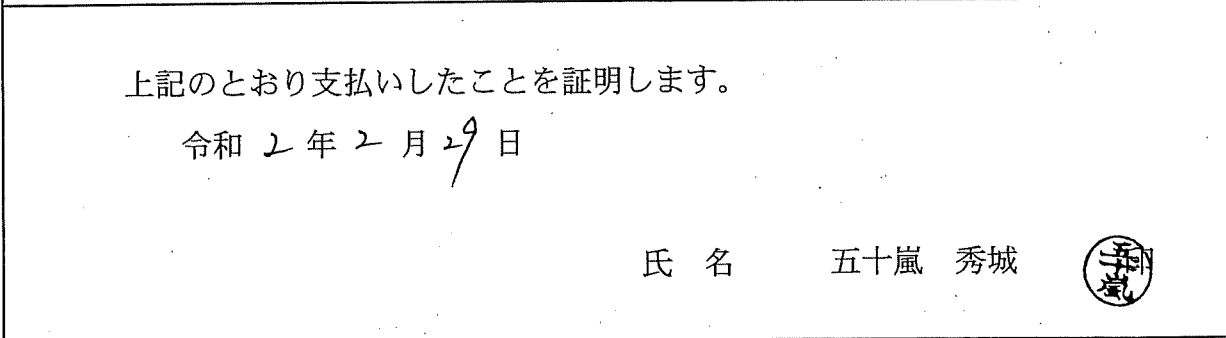 上記のとおり支払いしたことを証明します。
令和 2 年 2 月 29 日
氏 名 五十嵐 秀城 印
五十嵐